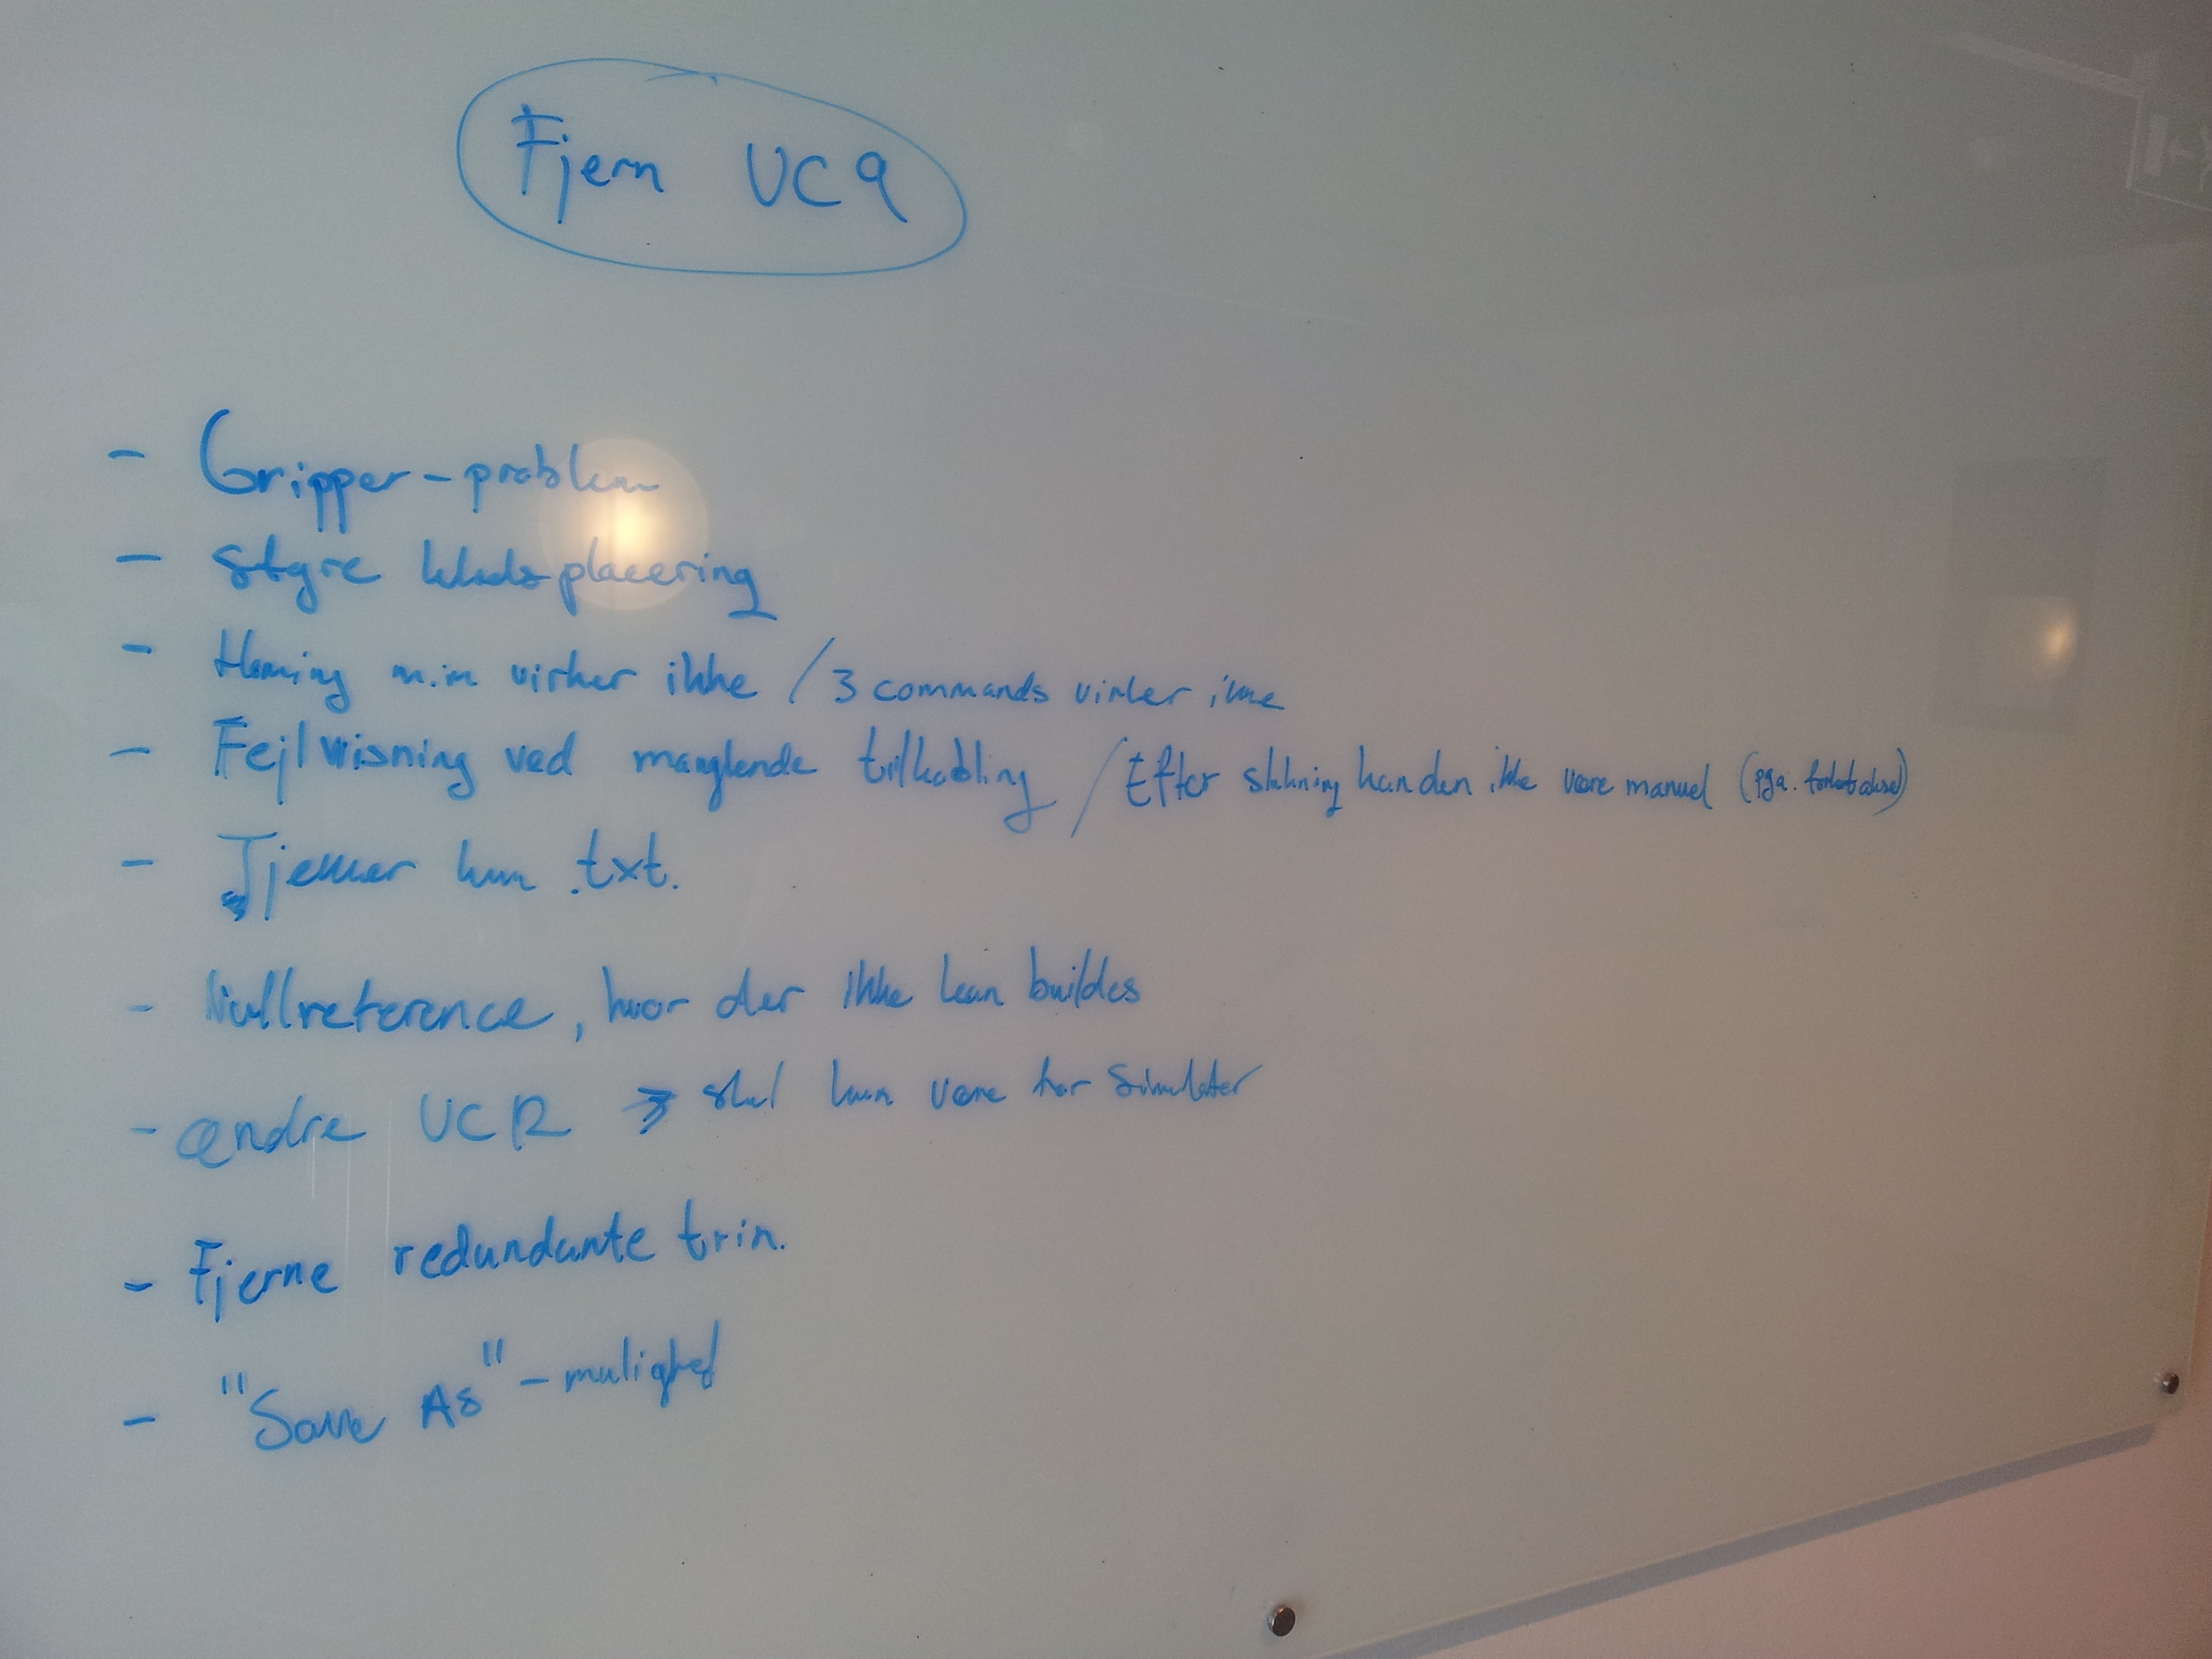 Fjern UC9
- Gripper-problem
- Styre klodsplacering
- Homing m.m virker ikke / 3 commands virker ikke
- Fejlvisning ved manglende tilkobling / Efter slukning kan den ikke være manuel (pga.
- Tjekker kun .txt.
- Nullreference, hvor der ikke kan buildes
- ændre UC12 → skal kun være for Simulator
- Fjerne redundante trin.
- "Save As" - mulighed